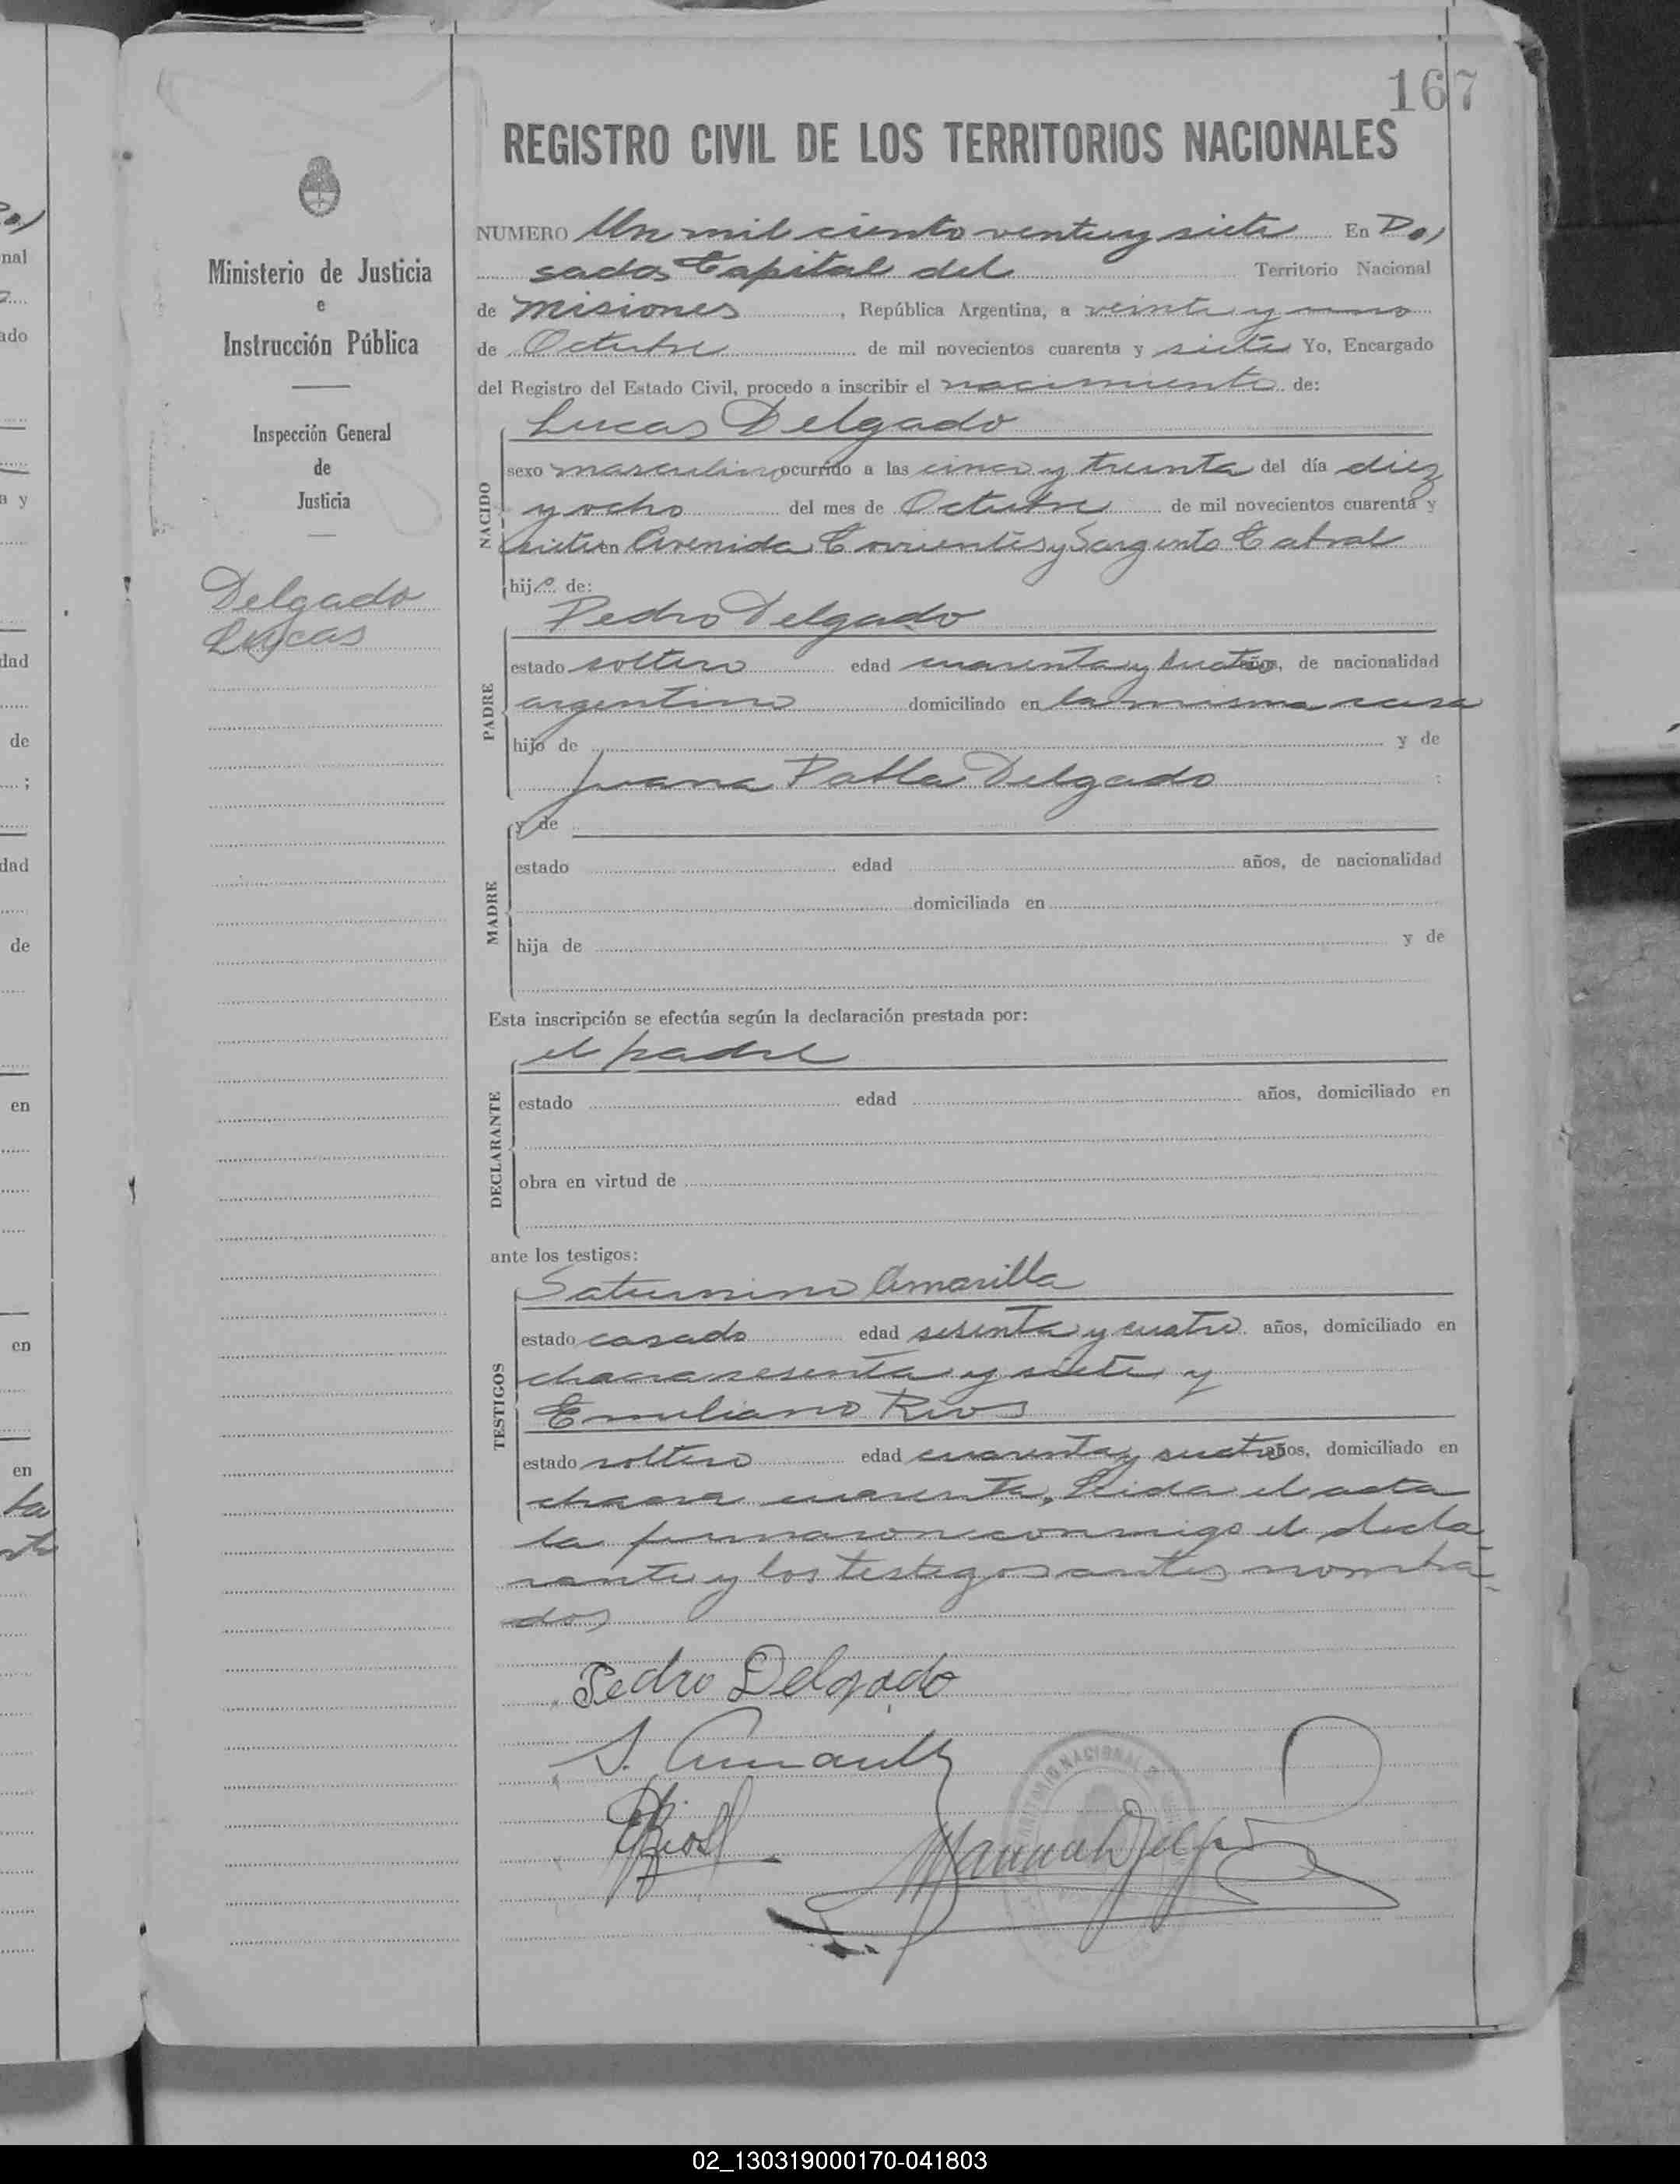 167
REGISTRO CIVIL DE LOS TERRITORIOS NACIONALES
Ministerio de Justicia
e
Instrucción Pública
Inspección General
de
Justicia
Delgado
Lucas
NUMERO Un mil ciento ventuy siete En Po,
sadas Capital del Territorio Nacional
de Misiones, República Argentina, a veinte y uno
de Octubre de mil novecientos cuarenta y siete Yo, Encargado
del Registro del Estado Civil, procedo a inscribir el nacimiento de:
Lucas Delgado
NACIDO
sexo masculino ocurrido a las cinco y treinta del día diez
y ocho del mes de Octubre de mil novecientos cuarenta y
siete en Avenida Corrientes y Sargento Cabral
hijo de:
Pedro Delgado
PADRE
estado soltero edad cuarenta y cuatro años, de nacionalidad
argentino domiciliado en la misma casa
hijo de y de
Juana Pabla Delgado
y de
MADRE
estado edad años, de nacionalidad
domiciliada en
hija de y de
Esta inscripción se efectúa según la declaración prestada por:
el padre
DECLARANTE
estado edad años, domiciliado en
obra en virtud de
ante los testigos:
Saturnino Amarilla
TESTIGOS
estado casado edad sesenta y cuatro años, domiciliado en
chacra sesenta y siete y
Emiliano Rios
estado soltero edad cuarenta y cuatro años, domiciliado en
chacra cuarenta. Leida el acta
la firmaron conmigo el decla
rante y los testigos antes nombra-
dos
Pedro Delgado
S. Amarilla
ERios
02_130319000170-041803